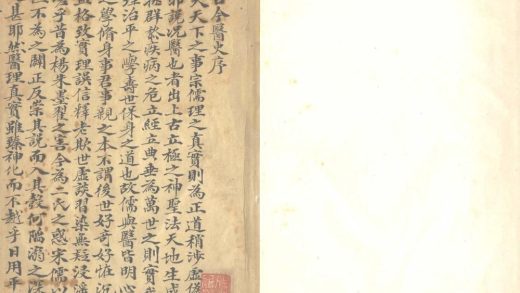 今醫史序
天下之事宗儒理之真實則為正道稍涉虛偽
邪說況醫也者出上古立極之神聖法天地生成
拯群黎疾病之危立經立典垂為萬世之則實
治平之學壽世保身之道也故儒與醫皆明心
之學脩身事君事親之本不謂後世好奇好怪沉
格致實理誤信釋老欺世虛談習染無疑浸淫
乎昔為楊朱墨翟之害今為二氏之惑宋儒以
不為之闢正反崇其說而入其彀何陷溺之深
甚耶然醫理真實雖臻神化而不越乎日用平